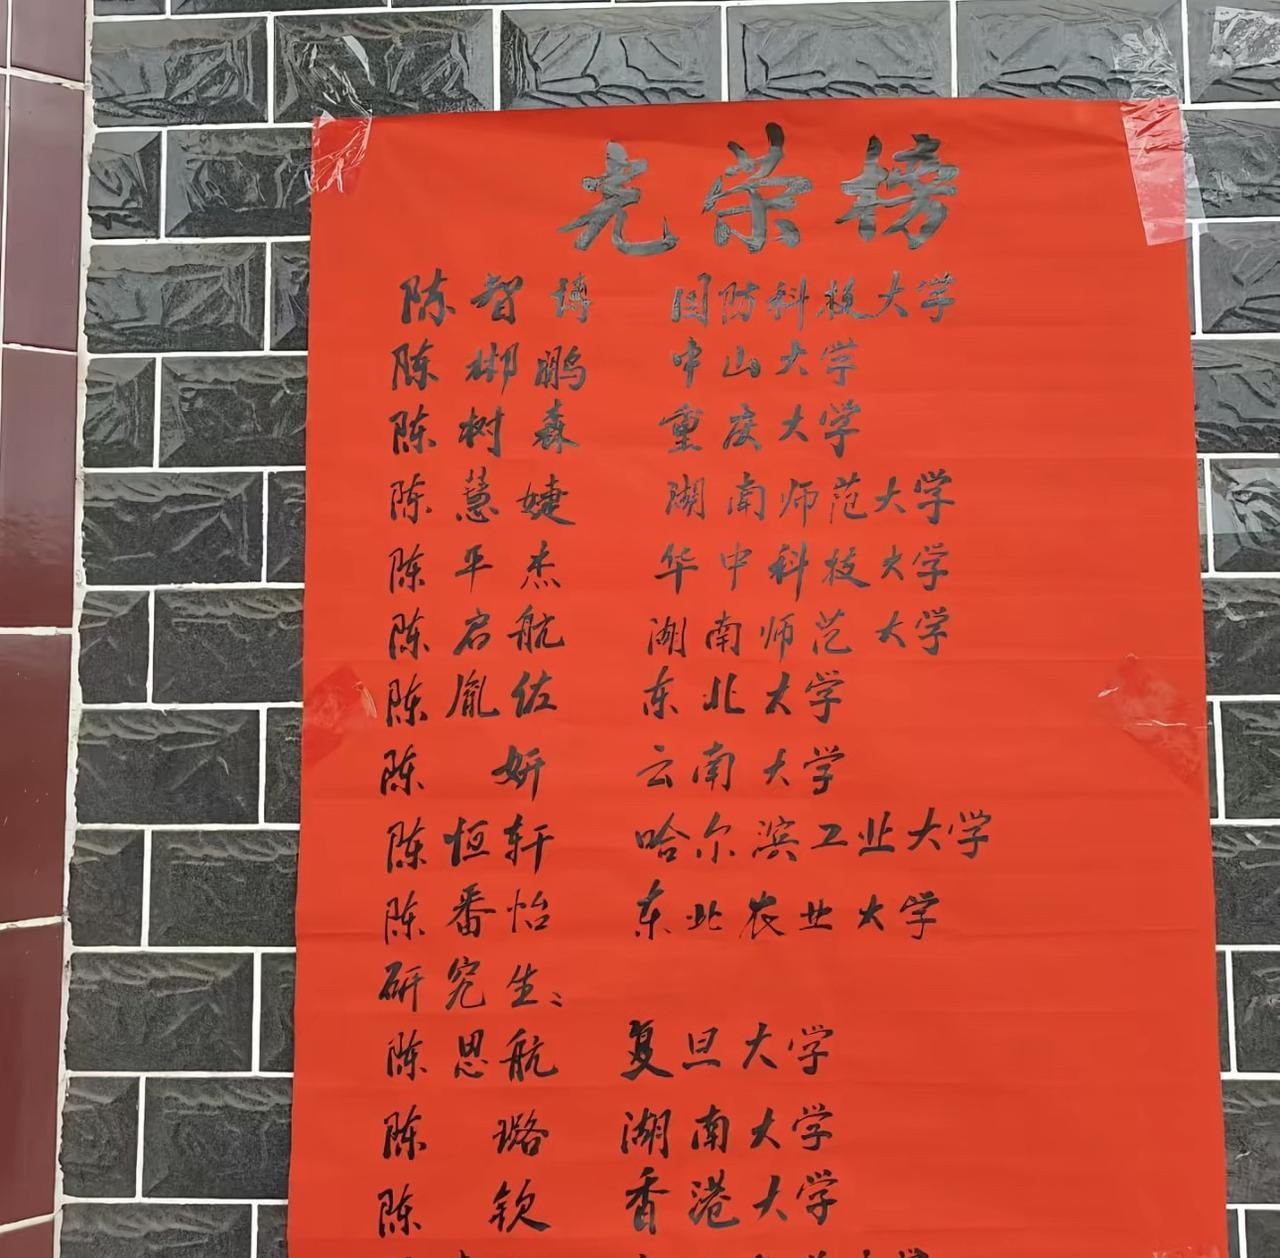 光荣榜
陈智博 国防科技大学
陈彬鹏 中山大学
陈树森 重庆大学
陈慧婕 湖南师范大学
陈平杰 华中科技大学
陈启航 湖南师范大学
陈胤佐 东北大学
陈妍 云南大学
陈恒轩 哈尔滨工业大学
陈番怡 东北农业大学
研究生:
陈思航 复旦大学
陈璐 湖南大学
陈钦 香港大学